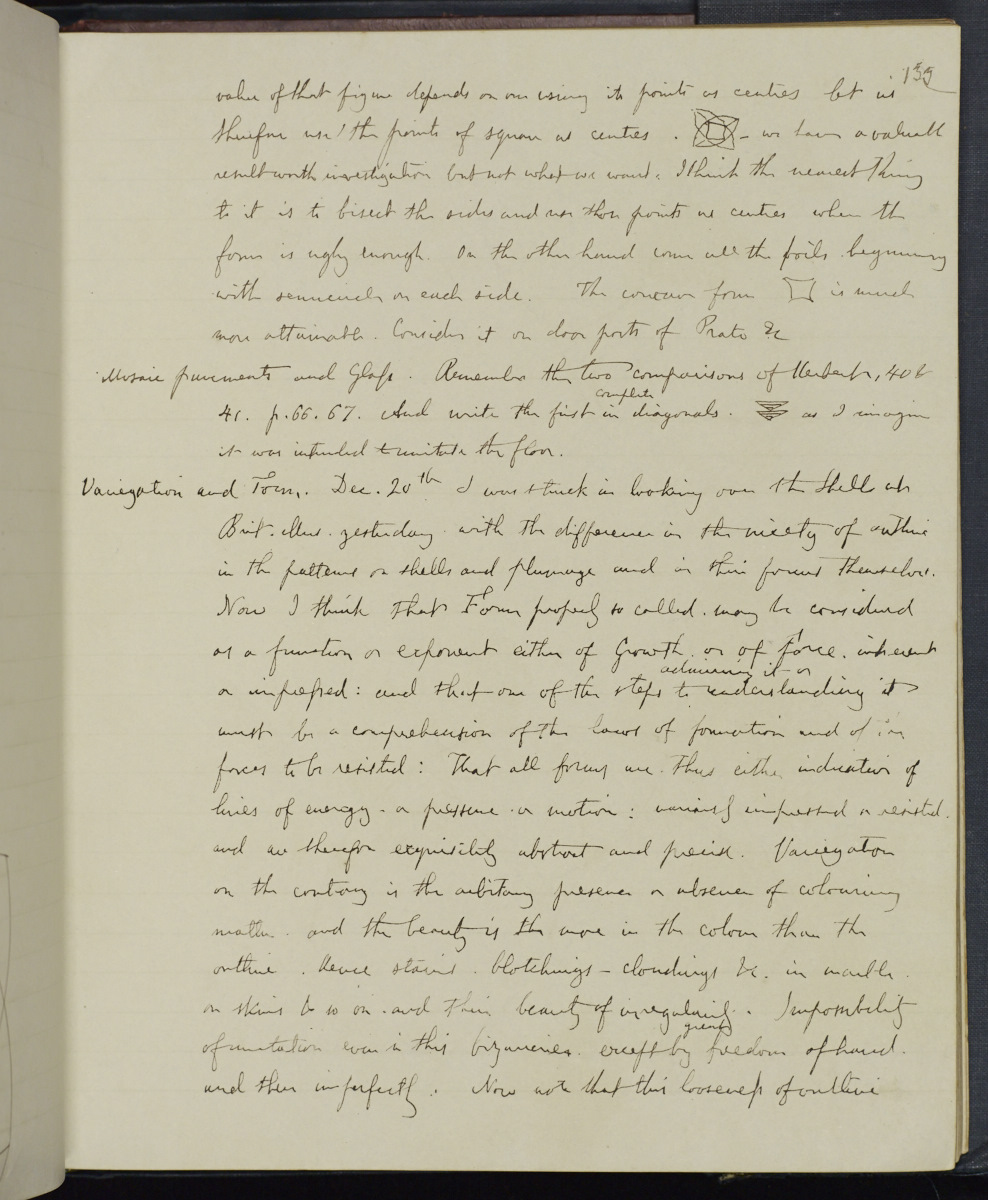 155
value of that figure depends on our using its points as centres let us
therefore use the points of square as centres . - we have a valuable
result worth investigation but not what we want: I think the nearest thing
to it is to bisect the sides and use those points as centres when the
form is ugly enough. On the other hand come all the foils beginning
with semicircle on each side. The concave form is much
more attainable. Consider it on door posts of Prato &c
Mosaic pavements and Glass. Remember the two comparisons of Herbert, 40 &
complete
41. p. 66. 67. And write the first in diagonals. as I imagine
it was intended to imitate the floor.
Variegation and Form. Dec. 20th I was struck in looking over the shells at
Brit. Mus. yesterday with the difference in the nicety of outline
in the patterns on shells and plumage and in their forms themselves.
Now I think that Form properly so called may be considered
as a function or exponent either of Growth or of force. inherent
admiring it or
or impressed: and that one of the steps to understanding it
must be a comprehension of the laws of formation and of the
forces to be resisted: That all forms are thus either indicative of
lines of energy - or pressure or motion: variously impressed or resisted.
and are therefore exquisitely abstract and precise. Variegation
on the contrary is the arbitrary presence or absence of colouring
matter. and the beauty is the more in the colour than the
outline. Hence stains. blotchings - cloudings &c. in marble.
on skins & so on and their beauty of irregularity. Impossibility
great
of imitation even in this bizarreries. except by freedom of hand.
and then imperfectly. Now note that this looseness of outline